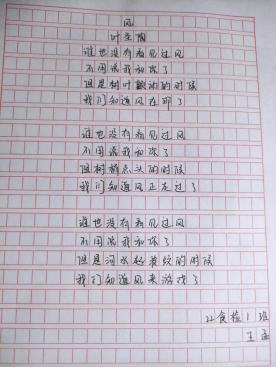 风
叶圣陶
谁也没有看见过风
不用说我和你了
但是树叶颤动的时候
我们知道风在那了
谁也没有看见过风
不用说我和你了
但树梢点头的时候
我们知道风正走过了
谁也没有看见过风
不用说我和你了
但是河水起波纹的时候
我们知道风来游戏了
22食检1班
王孟